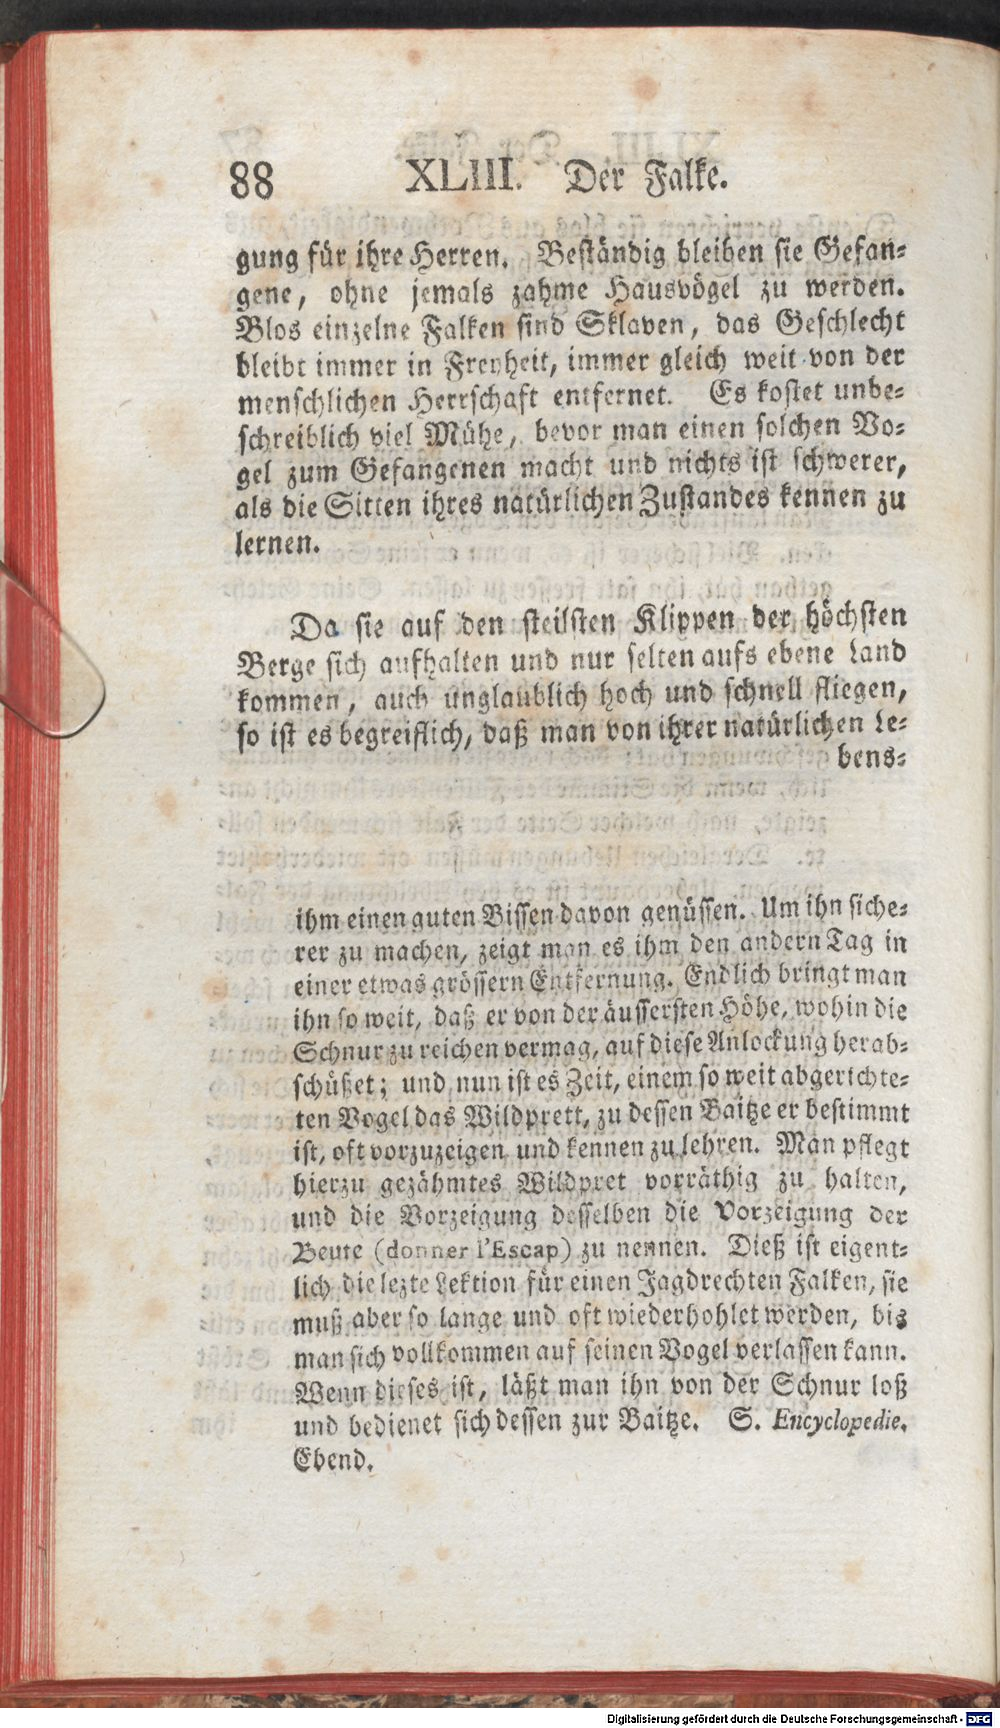 88 XLIII. Der Falke.
gung für ihre Herren. Beständig bleiben sie Gefan-
gene, ohne jemals zahme Hausvögel zu werden.
Blos einzelne Falken sind Sklaven, das Geschlecht
bleibt immer in Freyheit, immer gleich weit von der
menschlichen Herrschaft entfernet. Es kostet unbe-
schreiblich viel Mühe, bevor man einen solchen Vo-
gel zum Gefangenen macht und nichts ist schwerer,
als die Sitten ihres natürlichen Zustandes kennen zu
lernen.
Da sie auf den steilsten Klippen der höchsten
Berge sich aufhalten und nur selten aufs ebene Land
kommen, auch unglaublich hoch und schnell fliegen,
so ist es begreiflich, daß man von ihrer natürlichen Le-
bens-
ihm einen guten Bissen davon genüssen. Um ihn siche-
rer zu machen, zeigt man es ihm den andern Tag in
einer etwas grössern Entfernung. Endlich bringt man
ihn so weit, daß er von der äussersten Höhe, wohin die
Schnur zu reichen vermag, auf diese Anlockung herab-
schüßet; und nun ist es Zeit, einem so weit abgerichte-
ten Vogel das Wildprett, zu dessen Baitze er bestimmt
ist, oft vorzuzeigen und kennen zu lehren. Man pflegt
hierzu gezähmtes Wildpret vorräthig zu halten,
und die Vorzeigung desselben die Vorzeigung der
Beute (donner l'Escap) zu nennen. Dieß ist eigent-
lich die lezte Lektion für einen Jagdrechten Falken, sie
muß aber so lange und oft wiederhohlet werden, bis
man sich vollkommen auf seinen Vogel verlassen kann.
Wenn dieses ist, läßt man ihn von der Schnur loß
und bedienet sich dessen zur Baitze. S. Encyclopedie.
Ebend.
Digitalisierung gefördert durch die Deutsche Forschungsgemeinschaft - DFG